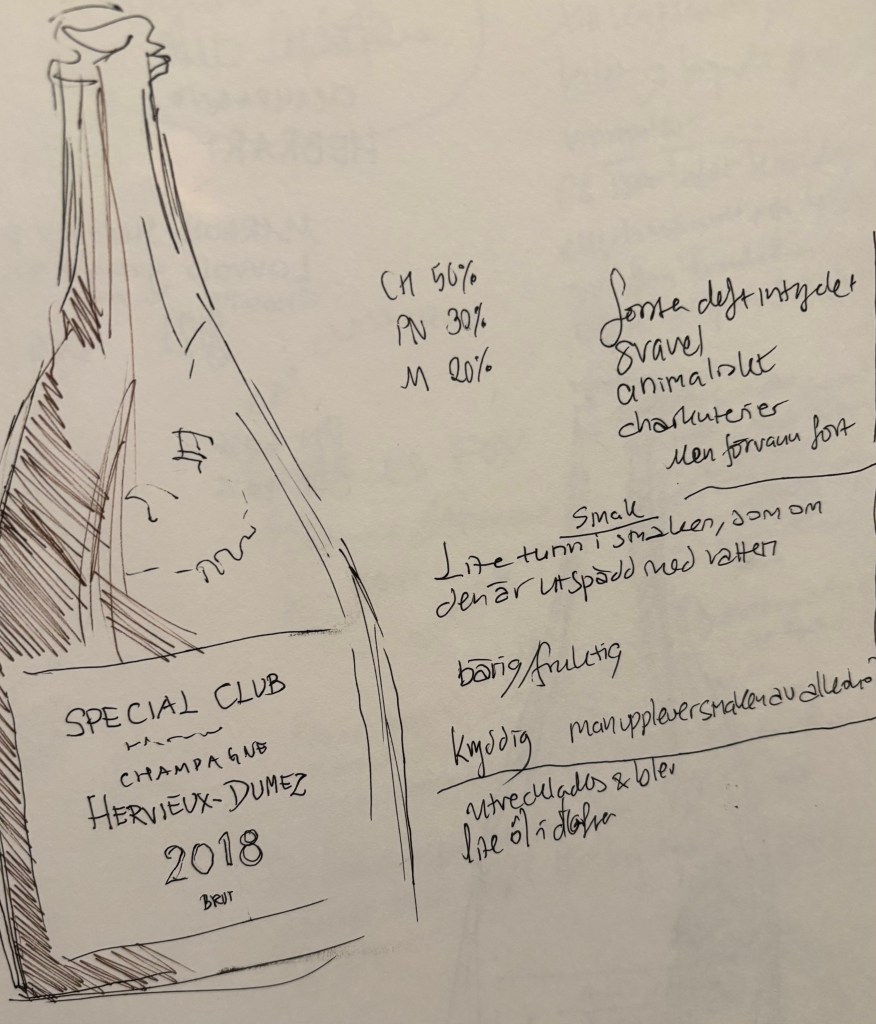 SPECIAL CLUB
CHAMPAGNE
HERVIEUX-DUMEZ
2018
BRUT
CH 50%
PN 30%
M 20%
första doftintrycket
svavel
animaliskt
charkuterier
Men försvann fort
Smak
Lite tunn i smaken, som om
den är utspädd med vatten
bärig/fruktig
kryddig man upplever smaken av alkohol
utvecklades & blev
lite öl i doften